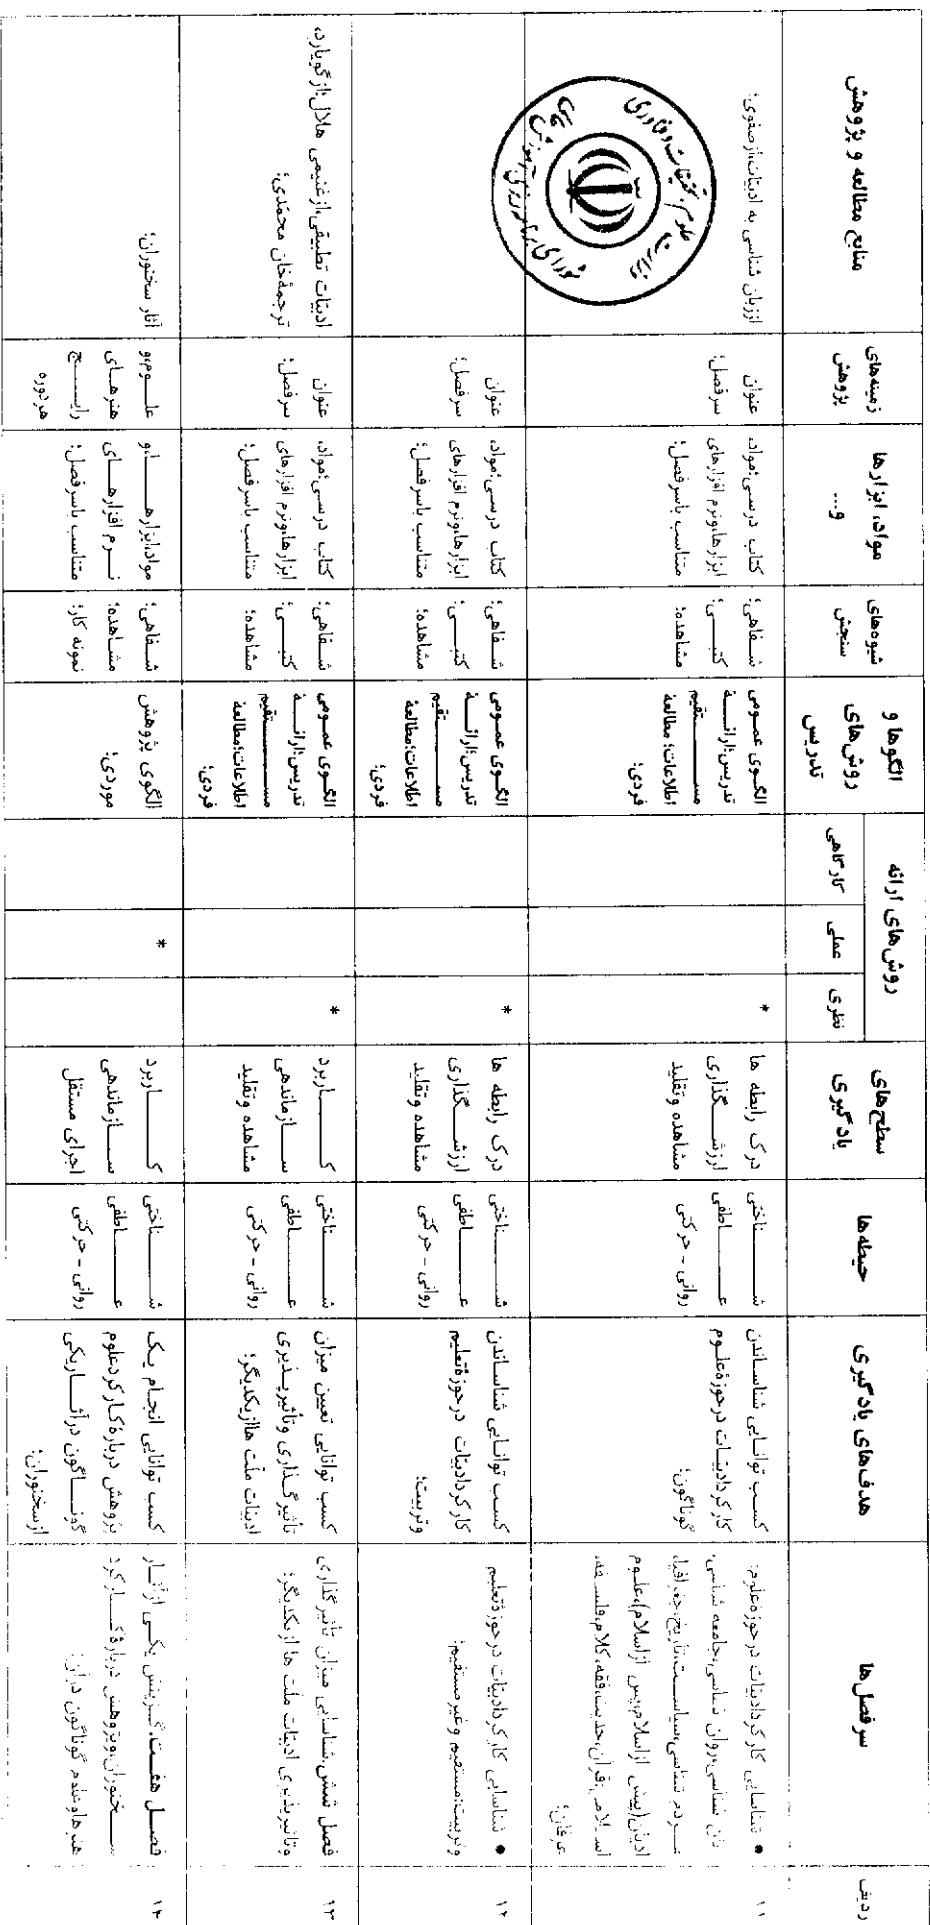 ردیف
سرفصل‌ها
هدف‌های یادگیری
حیطه‌ها
سطح‌های
یادگیری
روش‌های ارائه
نظری
عملی
کارگاهی
الگوها و
روش‌های
تدریس
شیوه‌های
سنجش
مواد، ابزارها
و...
زمینه‌های
پژوهش
منابع مطالعه و پژوهش
۱۱
• شناسایی کارکردادبیات درحوزه‌علوم:
زبان شناسی،روان شناسی،جامعه شناسی،
مردم شناسی،سیاست،تاریخ،جغرافیا،
ادیان(پیش ازاسلام،پس ازاسلام)،علوم
اسلامی:قرآن،حدیث،فقه،کلام،فلسفه،
عرفان؛
کسب توانایی شناساندن
کارکردادبیات درحوزۀعلوم
گوناگون؛
شناختی
عاطفی
روانی - حرکتی
درک رابطه ها
ارزشگذاری
مشاهده وتقلید
*
الگوی عمومی
تدریس؛ارائۀ
مستقیم
اطلاعات؛ مطالعۀ
فردی؛
شفاهی؛
کتبی؛
مشاهده؛
کتاب درسی؛مواد،
ابزارها،ونرم افزارهای
متناسب باسرفصل؛
عنوان
سرفصل؛
اززبان شناسی به ادبیات،ازصفوی؛
وزارت علوم، تحقیقات و فناوری
شورای برنامه‌ریزی آموزش عالی
۱۲
• شناسایی کارکردادبیات درحوزۀتعلیم
وتربیت:مستقیم وغیرمستقیم؛
کسب توانایی شناساندن
کارکردادبیات درحوزۀتعلیم
وتربیت؛
شناختی
عاطفی
روانی - حرکتی
درک رابطه ها
ارزشگذاری
مشاهده وتقلید
*
الگوی عمومی
تدریس؛ارائۀ
مستقیم
اطلاعات؛مطالعۀ
فردی؛
شفاهی؛
کتبی؛
مشاهده؛
کتاب درسی؛مواد،
ابزارها،ونرم افزارهای
متناسب باسرفصل؛
عنوان
سرفصل؛
۱۳
فصل شش،شناسایی میزان تأثیرگذاری
وتأثیرپذیری ادبیات ملت هاازیکدیگر؛
کسب توانایی تعیین میزان
تأثیرگذاری وتأثیرپذیری
ادبیات ملّت هاازیکدیگر؛
شناختی
عاطفی
روانی - حرکتی
کاربرد
سازماندهی
مشاهده وتقلید
*
الگوی عمومی
تدریس؛ارائۀ
مستقیم
اطلاعات؛مطالعۀ
فردی؛
شفاهی؛
کتبی؛
مشاهده؛
کتاب درسی؛مواد،
ابزارها،ونرم افزارهای
متناسب باسرفصل؛
عنوان
سرفصل؛
ادبیّات تطبیقی،ازغنیمی هلال؛ازگویارد،
ترجمۀخان محمّدی؛
۱۴
فصل هفت،گزینش یکی ازآثار
سخنوران،وپژوهش دربارۀکارکرد
هنرهاوعلوم گوناگون درآن؛
کسب توانایی انجام یک
پژوهش دربارۀکارکردعلوم
گوناگون درآثاریکی
ازسخنوران؛
شناختی
عاطفی
روانی - حرکتی
کاربرد
سازماندهی
اجرای مستقل
*
الگوی پژوهش
موردی؛
شفاهی؛
مشاهده؛
نمونه کار؛
مواد،ابزارها،و
نرم افزارهای
متناسب باسرفصل؛
علوم،و
هنرهای
رایج
هردوره
آثار سخنوران؛